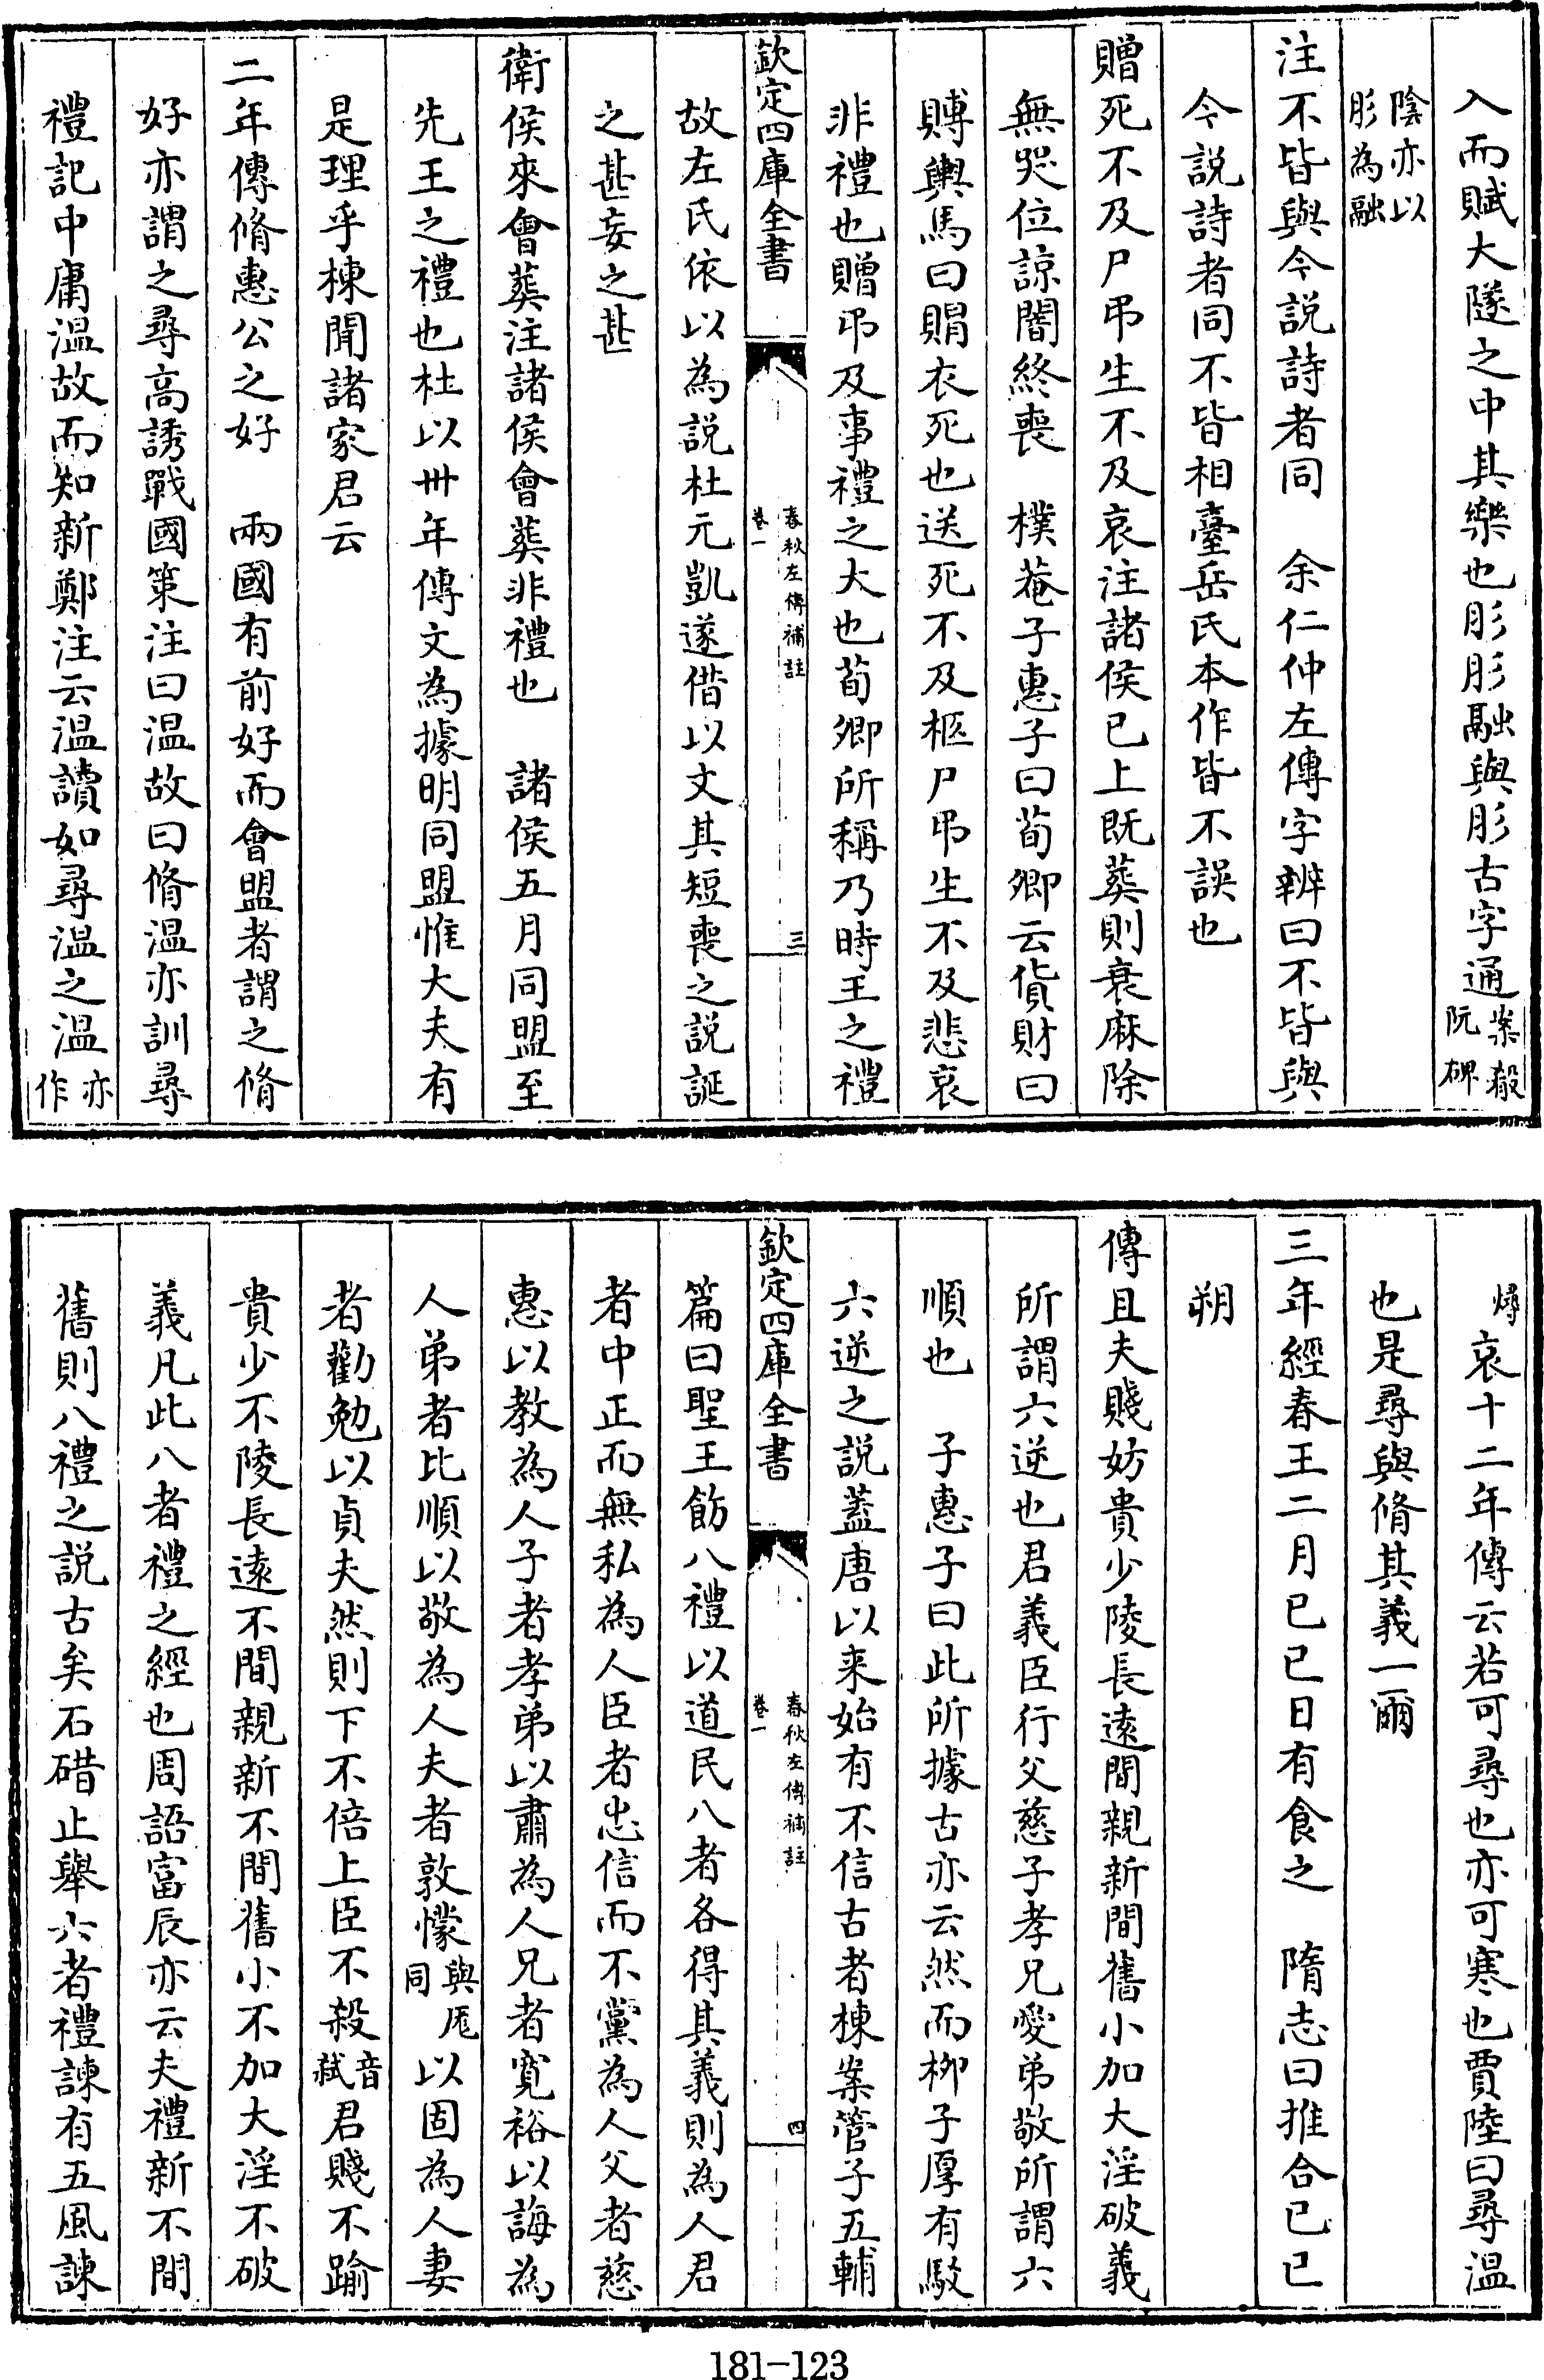 入而賦大隧之中其樂也肜肜融與肜古字通案殽阮碑
陰亦以肜為融
注不皆與今説詩者同　余仁仲左傳字辨曰不皆與
今説詩者同不皆相臺岳氏本作皆不誤也
贈死不及尸弔生不及哀注諸侯已上既葬則衰麻除
無哭位諒闇終喪　樸菴子惠子曰荀卿云貨財曰
賻輿馬曰賵衣死也送死不及柩尸弔生不及悲哀
非禮也贈弔及事禮之大也荀卿所稱乃時王之禮
欽定四庫全書
春秋左傳補註
卷一
三
故左氏依以為説杜元凱遂借以文其短喪之説誕
之甚妄之甚
衛侯來會葬注諸侯會葬非禮也　諸侯五月同盟至
先王之禮也杜以卅年傳文為據明同盟惟大夫有
是理乎棟聞諸家君云
二年傳脩惠公之好　兩國有前好而會盟者謂之脩
好亦謂之尋高誘戰國策注曰温故曰脩温亦訓尋
禮記中庸温故而知新鄭注云温讀如尋温之温亦作
燖哀十二年傳云若可尋也亦可寒也賈陸曰尋温
也是尋與脩其義一爾
三年經春王二月已已日有食之　隋志曰推合已已
朔
傳且夫賤妨貴少陵長遠間親新間舊小加大淫破義
所謂六逆也君義臣行父慈子孝兄愛弟敬所謂六
順也　子惠子曰此所據古亦云然而柳子厚有駁
六逆之説蓋唐以来始有不信古者棟案管子五輔
欽定四庫全書
春秋左傳補註
卷一
四
篇曰聖王飭八禮以道民八者各得其義則為人君
者中正而無私為人臣者忠信而不黨為人父者慈
惠以教為人子者孝弟以肅為人兄者寛裕以誨為
人弟者比順以敬為人夫者敦懞與厖同以固為人妻
者勸勉以貞夫然則下不倍上臣不殺音弑君賤不踰
貴少不陵長遠不間親新不間舊小不加大淫不破
義凡此八者禮之經也周語富辰亦云夫禮新不間
舊則八禮之説古矣石碏止舉六者禮諫有五風諫
181-123